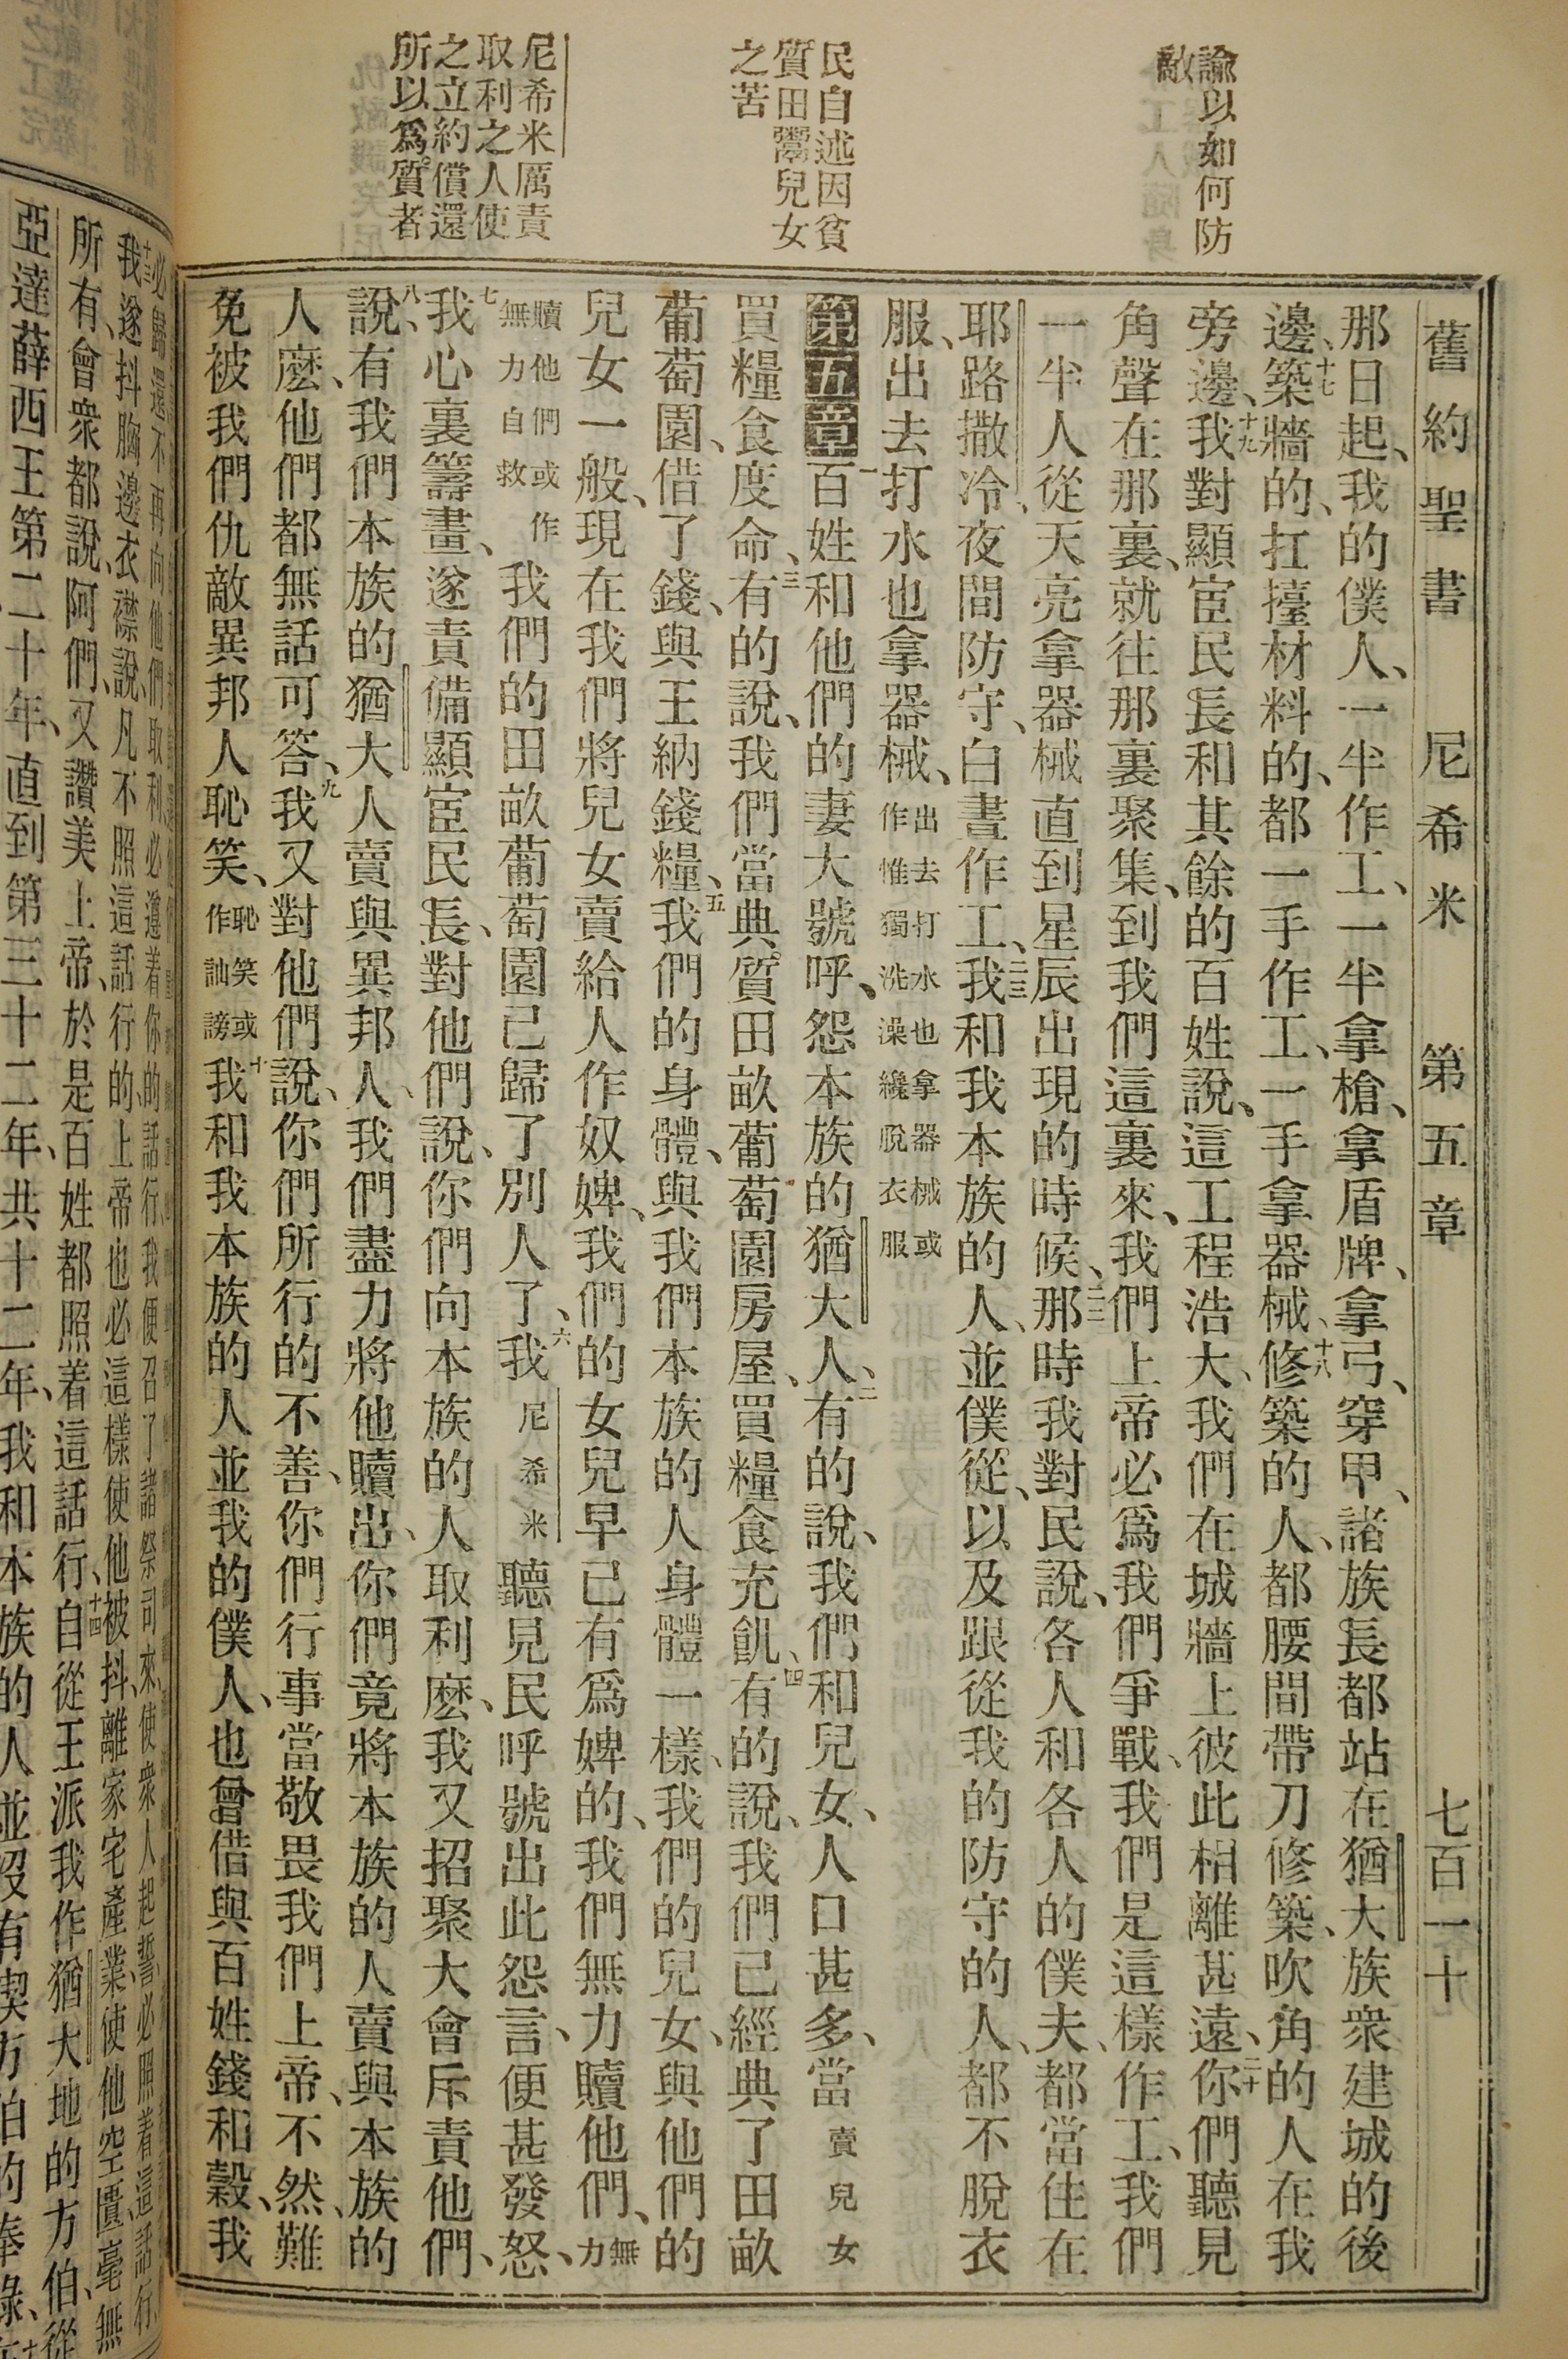 諭以如何防
敵
民自述因貧
質田鬻兒女
之苦
尼希米厲責
取利之人使
之立約償還
所以爲質者
舊約聖書 尼希米 第五章 七百一十
那日起、我的僕人、一半作工、一半拿槍、拿盾牌、拿弓、穿甲、諸族長都站在猶大族衆建城的後
邊、十七築牆的、扛擡材料的、都一手作工、一手拿器械、十八修築的人、都腰間帶刀修築、吹角的人在我
旁邊、十九我對顯宦民長和其餘的百姓說、這工程浩大、我們在城牆上彼此相離甚遠、二十你們聽見
角聲在那裏、就往那裏聚集、到我們這裏來、我們上帝必爲我們爭戰、我們是這樣作工、我們
一半人從天亮拿器械直到星辰出現的時候、二二那時我對民說、各人和各人的僕夫、都當住在
耶路撒冷、夜間防守、白晝作工、二三我和我本族的人、並僕從、以及跟從我的防守的人、都不脫衣
服、出去打水也拿器械、出去打水也拿器械或作惟獨洗澡纔脫衣服
第五章 一百姓和他們的妻大號呼、怨本族的猶大人、二有的說、我們和兒女、人口甚多、當賣兒女
買糧食度命、三有的說、我們當典質田畝葡萄園房屋、買糧食充飢、四有的說、我們已經典了田畝
葡萄園、借了錢、與王納錢糧、五我們的身體、與我們本族的人身體一樣、我們的兒女、與他們的
兒女一般、現在我們將兒女賣給人作奴婢、我們的女兒早已有爲婢的、我們無力贖他們、無力
贖他們或作無力自救我們的田畝葡萄園已歸了別人了、六我尼希米聽見民呼號出此怨言、便甚發怒、
七我心裏籌畫、遂責備顯宦民長、對他們說、你們向本族的人取利麽、我又招聚大會斥責他們、
八說、有我們本族的猶大人賣與異邦人、我們盡力將他贖出、你們竟將本族的人賣與本族的
人麽、他們都無話可答、九我又對他們說、你們所行的不善、你們行事當敬畏我們上帝、不然、難
免被我們仇敵異邦人恥笑、恥笑或作訕謗十我和我本族的人並我的僕人、也曾借與百姓錢和穀、我
必歸還不再向他們取利、必遵着你的話行、我便召了諸祭司來、使衆人起誓、必照着這話行、
十三我遂抖胸邊衣襟說、凡不照這話行的、上帝也必這樣使他被抖、離家宅產業、使他空匱毫無
所有、會衆都說、阿們、又讚美上帝、於是百姓都照着這話行、十四自從王派我作猶大地的方伯、從
亞達薛西王第二十年、直到第三十二年、共十二年、我和本族的人並沒有喫方伯的俸祿、